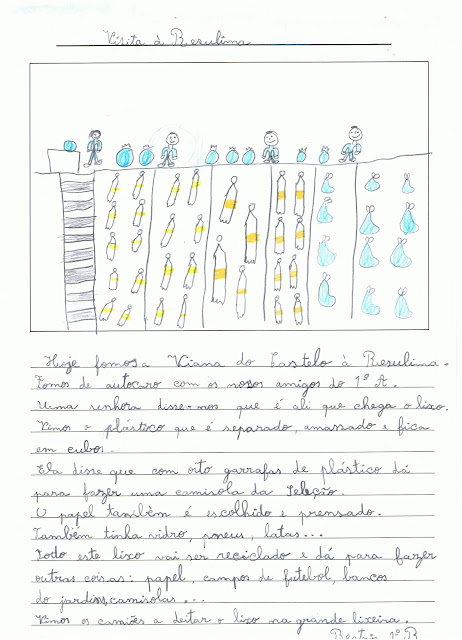 Visita à Resulima
Hoje fomos a Viana do Castelo à Resulima.
Fomos de autocarro com os nossos amigos do 1º A.
Uma senhora disse-nos que é ali que chega o lixo.
Vimos o plástico que é separado, amassado e fica
em cubos.
Ela disse que com oito garrafas de plástico dá
para fazer uma camisola da Seleção.
O papel também é escolhido e prensado.
Também tinha vidro, pneus, latas...
Todo este lixo vai ser reciclado e dá para fazer
outras coisas: papel, campos de futebol, bancos
do jardins, camisolas...
Vimos os camiões a deitar o lixo na grande lixeira.
Beatriz 1º B